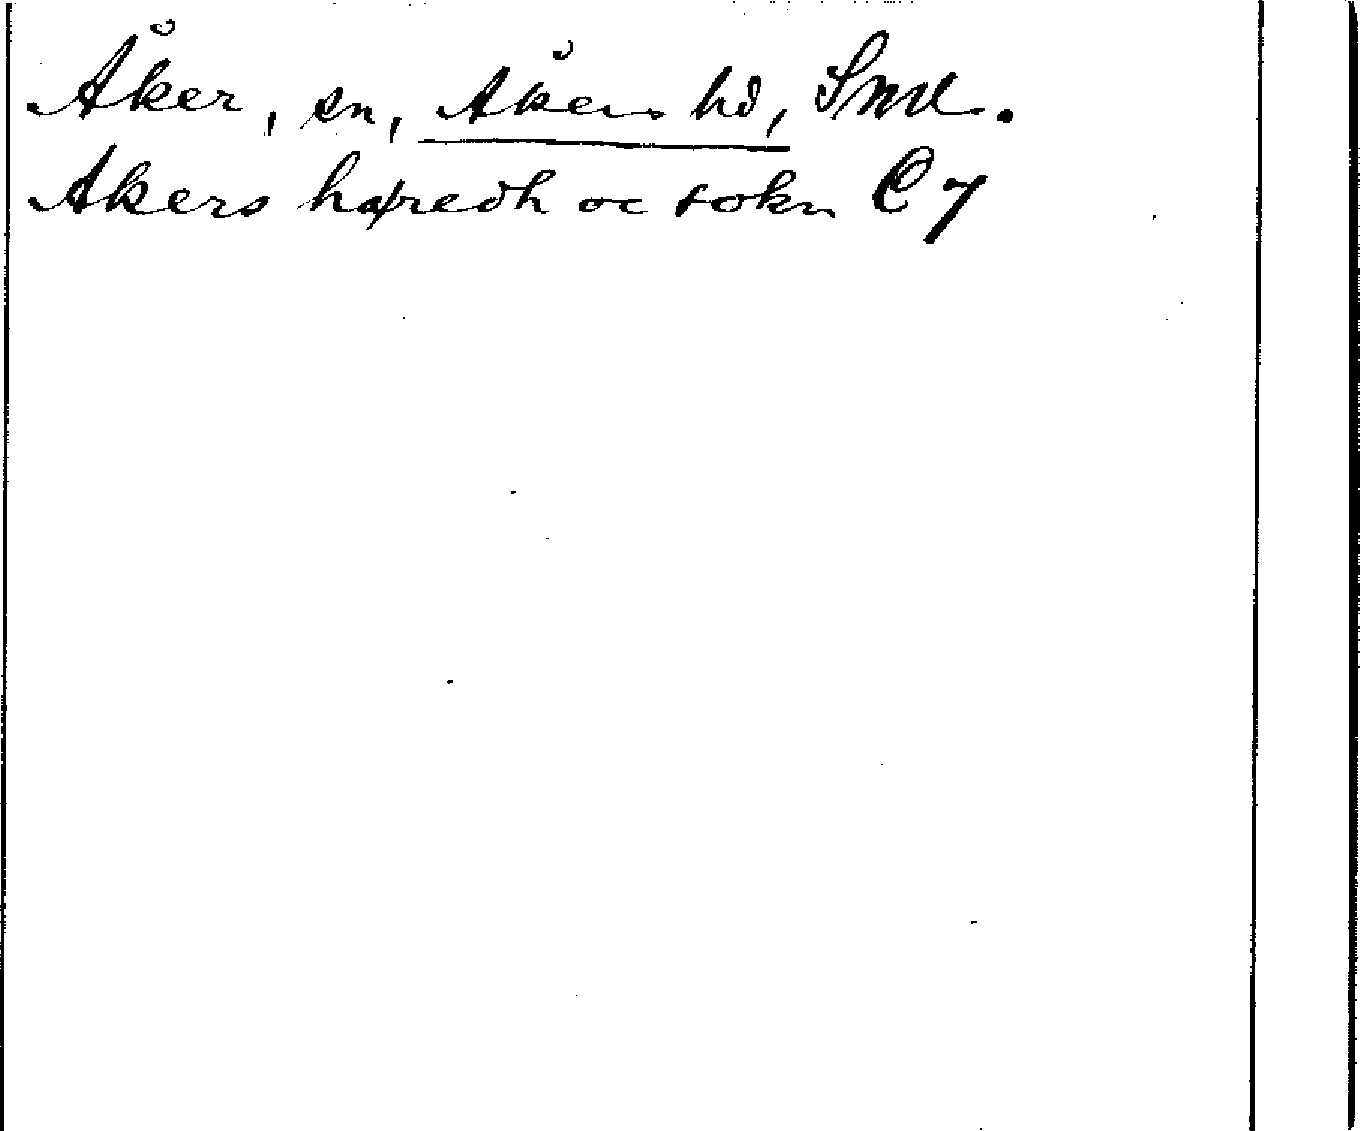 Åker, sn, Åkers hd, Sml.
Akers hæredh oc sokn C 7